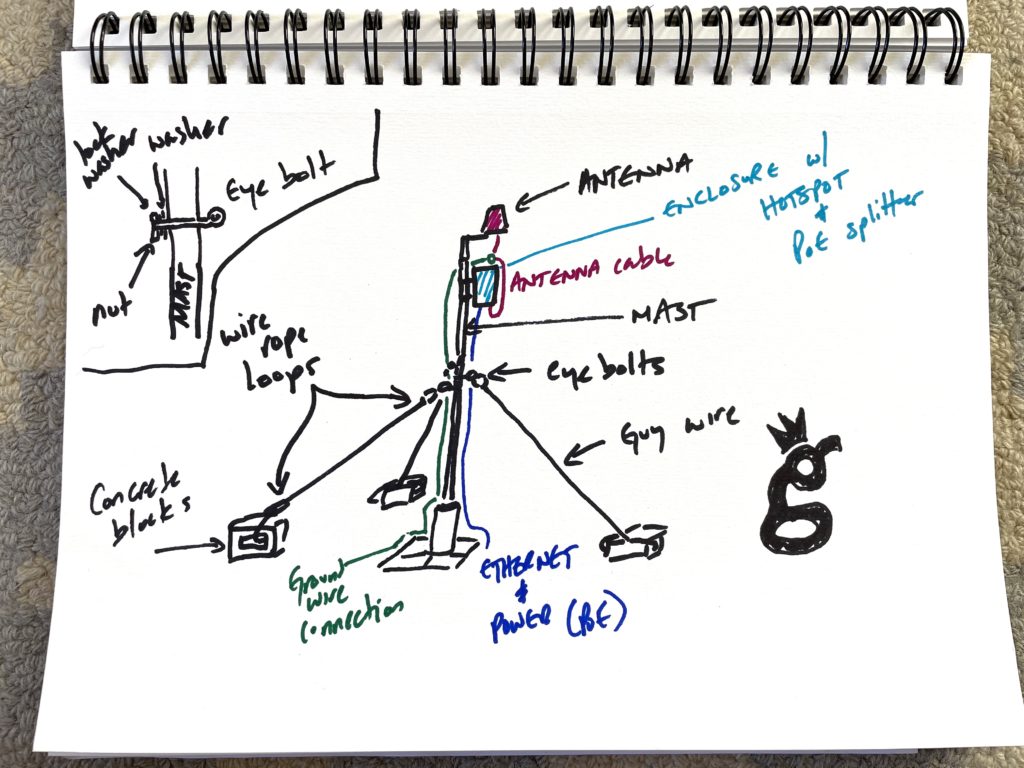 lock
washer washer
Eye bolt
nut
MAST
ANTENNA
ENCLOSURE w/
HOTSPOT
+
PoE splitter
ANTENNA cable
MAST
wire
rope
Loops
eye bolts
Guy wire
Concrete
blocks
g
Ground
wire
connection
ETHERNET
+
POWER (PoE)